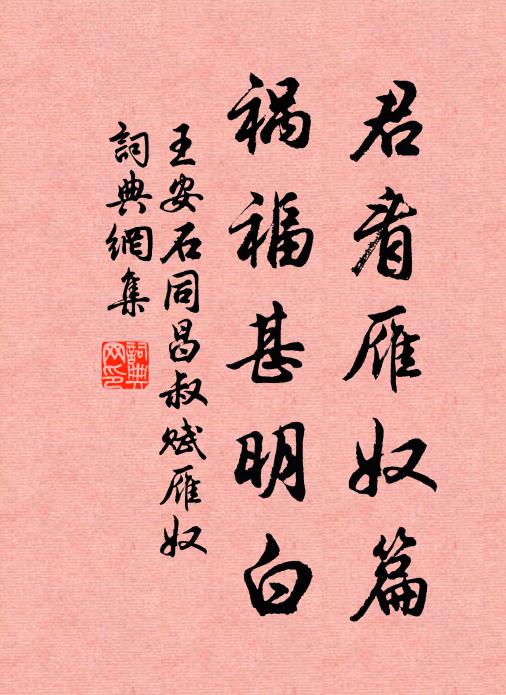 君看雁奴篇
祸福甚明白
王安石同昌叔赋雁奴
詞典網集
詞典网印